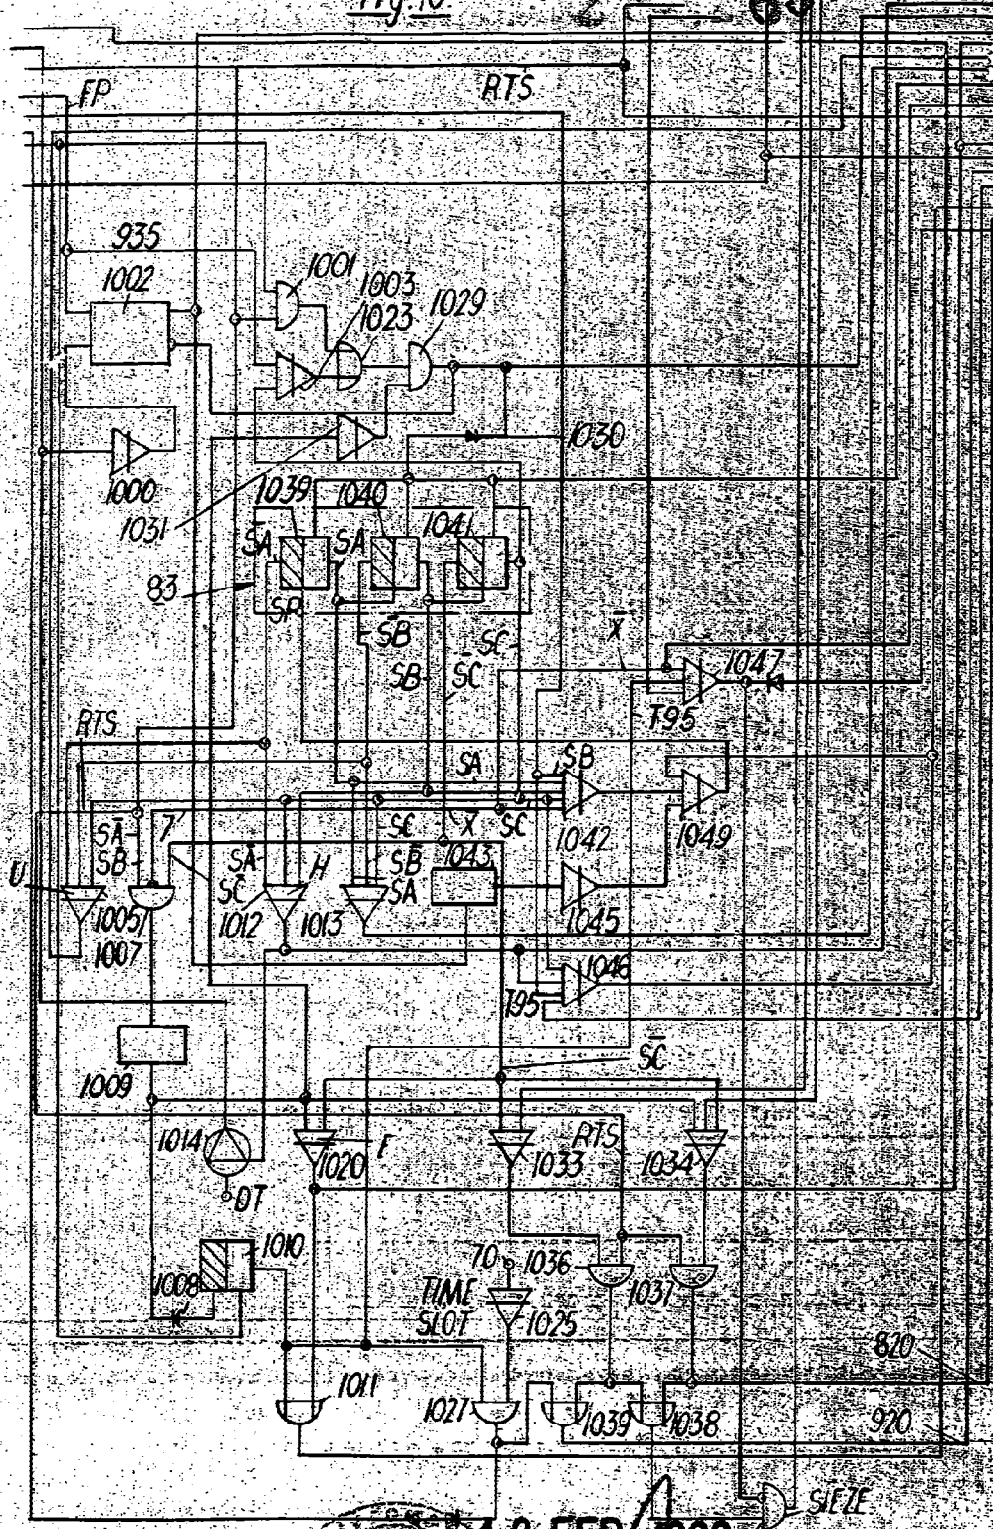 Fig.10.
FP
RTS
935
1002
1001
1003
1023
1029
1030
1000
1031
1039
1040
1041
S̅A̅
SA
83
SA
S̅B̅
SC
SB
S̅C̅
X̅
1047
T95
RTS
SA
SB
7
SC
X̅
S̅C̅
1042
1049
SA̅
SB
U
SA̅
H
SB̅
1043
SC̅
SA
1005
1007
1012
1013
1045
1046
T95
SC̅
1009
1014
DT
F
1020
1033
RTS
1034
1010
1008
70
1036
1037
TIME
SLOT
1025
820
1011
1027
1039
1038
920
SIEZE